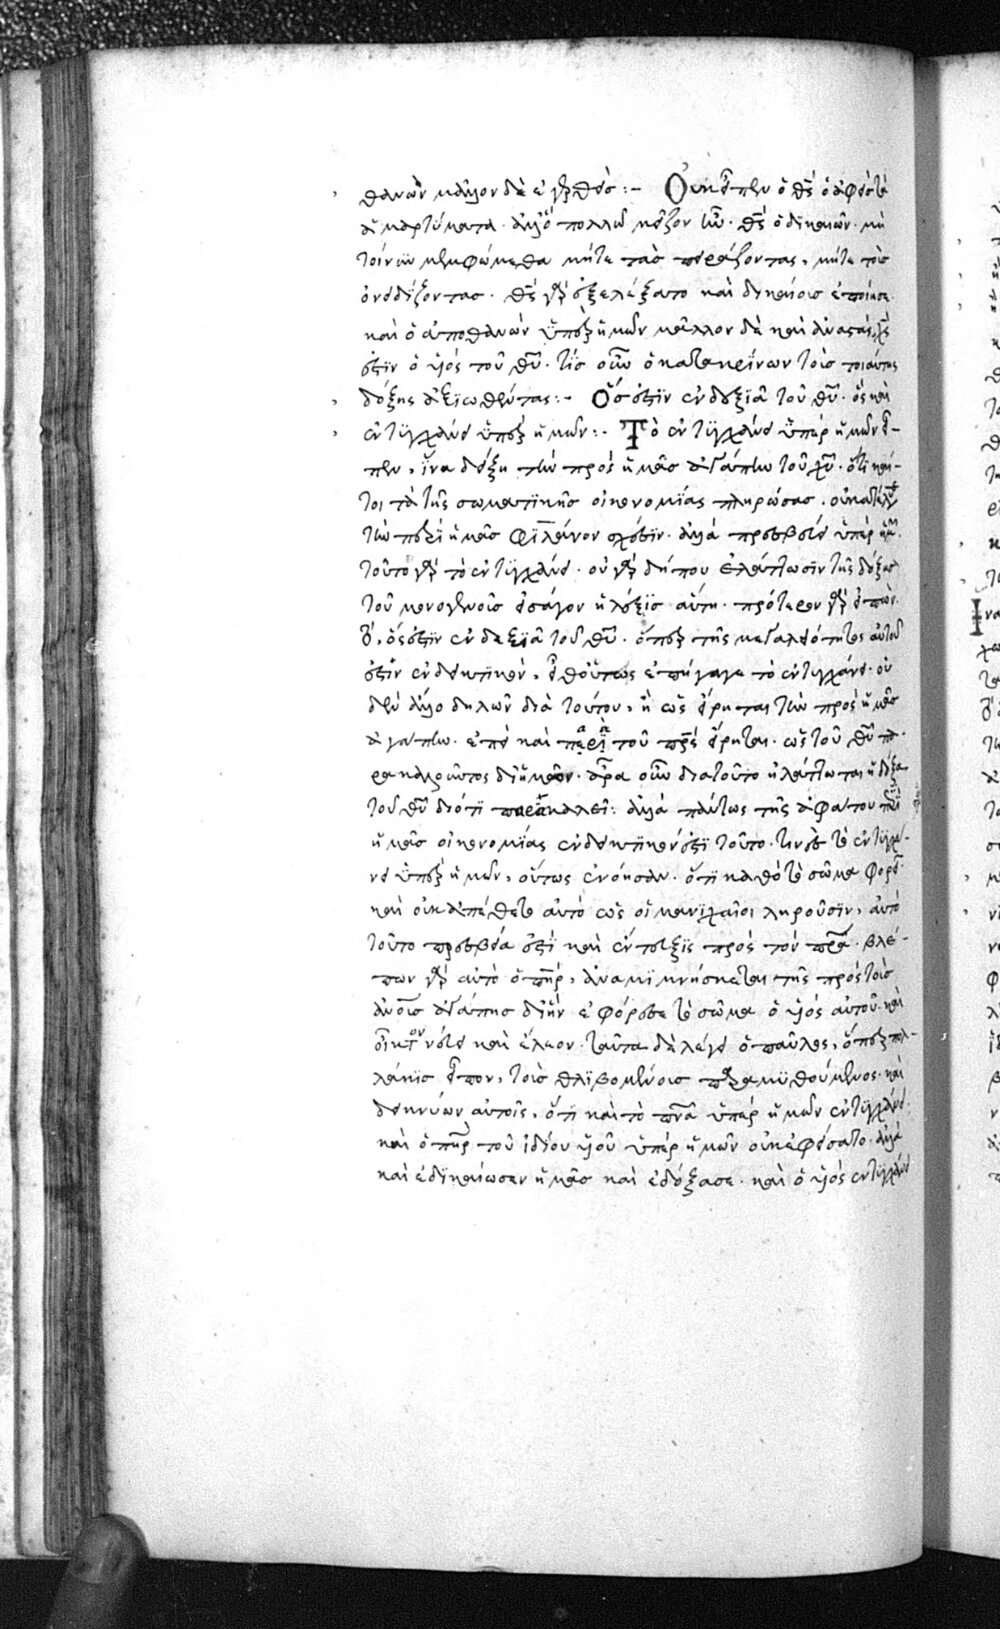 θανὼν μᾶλλον δὲ ἐγερθείς :– Οὐκ εἶπεν ὁ θς ὁ ἀφεὶς τὰ
ἁμαρτήματα· ἀλλ' ὃ πολλῷ μεῖζον ἦν· θς ὁ δικαιῶν· μὴ
τοίνυν μεμφώμεθα μήτε τὰσ πράξοντας, μήτε τοὺσ
ὀνειδίζοντασ· θς γὰρ ἐξελέξατο καὶ δικαίουσ ἐποίησε·
καὶ ὁ ἀποθανὼν ὑπὲρ ἡμῶν μᾶλλον δὲ καὶ ἀναστάς, χς
ἐστὶν ὁ υἱὸς τοῦ θυ· τίσ οὖν ὁ κατακρίνων τοὺσ τοιαύτης
δόξης ἀξιωθέντας :– Ὅσ ἐστιν ἐν δεξιᾷ τοῦ θυ· ὃς καὶ
ἐντυγχάνει ὑπὲρ ἡμῶν :– Τὸ ἐντυγχάνει ὑπὲρ ἡμῶν εἶ–
πεν, ἵνα δείξη τὴν πρὸς ἡμᾶσ ἀγάπην τοῦ χυ· ὅτι καί–
τοι τὰ τῆς σωματικῆς οἰκονομίας πληρώσας· οὐ κατέλυσε
τὴν περὶ ἡμᾶσ φιλάνον σχέσιν· ἀλλὰ πρεσβεύει ὑπὲρ ἡμῶν·
τοῦτο γὰρ τὸ ἐντυγχάνει· οὐ γὰρ δήπου ἐλάττωσιν τῆς δόξησ
τοῦ μονογενοῦσ εἰσάγον ἡ λέξισ αὕτη· πρότερον γὰρ εἰπὼν
ὅτι, ὅς ἐστιν ἐν δεξιᾷ τοῦ θυ· ὅπερ τῆς μεγαλειότητος αὐτοῦ
ἐστὶν ἐνδεικτικὸν, εἶθ' οὕτως ἐπήγαγε τὸ ἐντυγχάνει· οὐ
δὲν ἄλλο δηλῶν διὰ τούτου, ἢ ὡς εἴρηται τὴν πρὸς ἡμᾶσ
ἀγάπην· ἐπεὶ καὶ περὶ τοῦ πρς εἴρηται· ὡς τοῦ θυ πα·
ρακαλοῦντος δι' ἡμῶν· ἆρα οὖν διατοῦτο ἠλάττωται ἡ δόξα
τοῦ θυ διότι παρακαλεῖ: ἀλλὰ πάντως τῆς ἀφάτου περὶ
ἡμᾶσ οἰκονομίας ἐνδεικτικόν ἐστι τοῦτο· τινὲσ τὸ ἐντυγχά–
νει ὑπὲρ ἡμῶν, οὕτως ἐνόησαν· ὅτι καθὸ τὸ σῶμα φορεῖ
καὶ οὐκ ἀπέθετο αὐτὸ ὡς οἱ μανιχαῖοι ληροῦσιν, αὐτὸ
τοῦτο πρεσβεία ἐστὶ καὶ ἔντευξις πρὸς τὸν πρα· βλέ–
πων γὰρ αὐτὸ ὁ πηρ, ἀναμιμνήσκεται τῆς πρὸς τοὺσ
ἀνουσ ἀγάπησ δι' ἣν ἐφόρεσε τὸ σῶμα ὁ υἱὸς αὐτοῦ· καὶ
οἶκτον νεύει καὶ ἔλεον· ταῦτα δὲ λέγει ὁ παῦλος, ὅπερ πολ–
λάκισ εἶπον, τοὺσ θλιβομένουσ παραμυθούμενος· καὶ
δεικνύων αὐτοῖς, ὅτι καὶ τὸ πνα ὑπὲρ ἡμῶν ἐντυγχάνει·
καὶ ὁ πηρ τοῦ ἰδίου υἱοῦ ὑπὲρ ἡμῶν οὐκ ἐφείσατο· ἀλλὰ
καὶ ἐδικαίωσεν ἡμᾶσ καὶ ἐδόξασε· καὶ ὁ υἱὸς ἐντυγχάνει